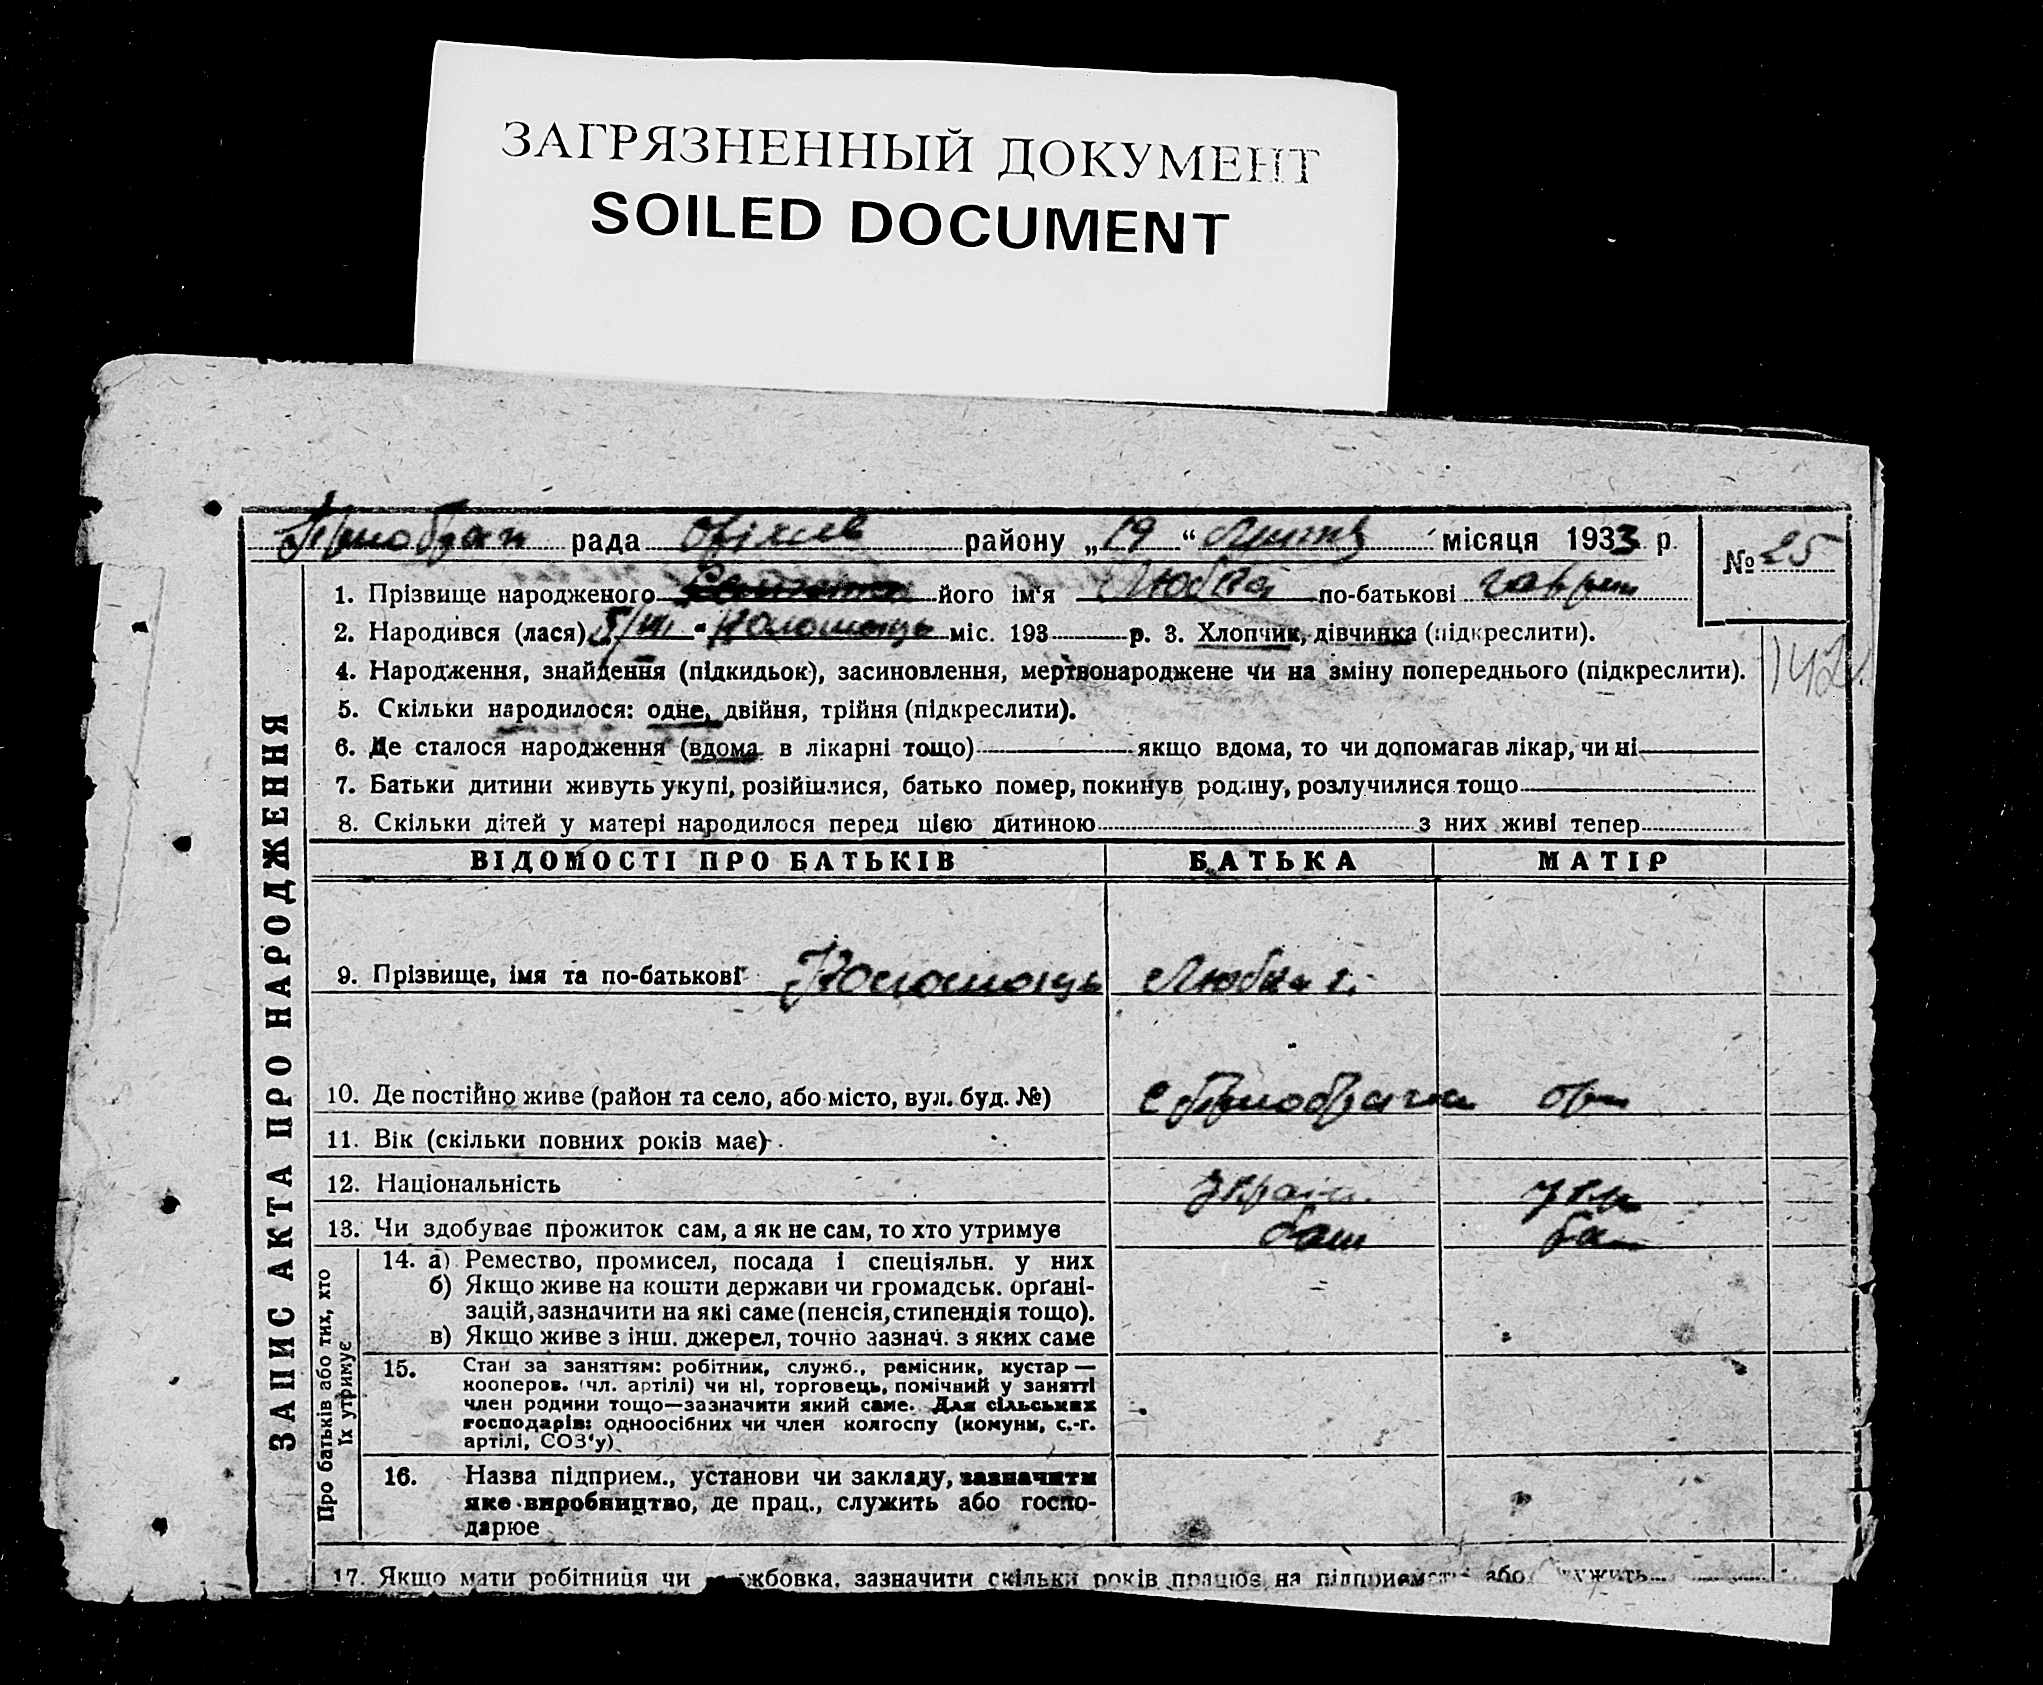 ЗАГРЯЗНЕННЫЙ ДОКУМЕНТ
SOILED DOCUMENT
рада району „19“ місяця 1933 р.
№ 25
1. Прізвище народженого його ім'я Любка по-батькові
2. Народився (лася) 5/VII міс. 193 р. 3. Хлопчик, дівчинка (підкреслити).
4. Народження, знайдення (підкидьок), засиновлення, мертвонароджене чи на зміну попереднього (підкреслити).
142
5. Скільки народилося: одне, двійня, трійня (підкреслити).
6. Де сталося народження (вдома в лікарні тощо) якщо вдома, то чи допомагав лікар, чи ні
7. Батьки дитини живуть укупі, розійшлися, батько помер, покинув родину, розлучилися тощо
8. Скільки дітей у матері народилося перед цією дитиною з них живі тепер
ЗАПИС АКТА ПРО НАРОДЖЕННЯ
ВІДОМОСТІ ПРО БАТЬКІВ БАТЬКА МАТІР
9. Прізвище, імя та по-батькові
10. Де постійно живе (район та село, або місто, вул. буд. №)
11. Вік (скільки повних років має)
12. Національність украін. укр
13. Чи здобуває прожиток сам, а як не сам, то хто утримує
Про батьків або тих, хто
їх утримує
14. а) Ремество, промисел, посада і спеціяльн. у них
б) Якщо живе на кошти держави чи громадськ. орґані-
зацій, зазначити на які саме (пенсія, стипендія тощо).
в) Якщо живе з інш. джерел, точно зазнач. з яких саме
15. Стан за заняттям: робітник, служб., ремісник, кустар —
кооперов. (чл. артілі) чи ні, торговець, помічний у занятті
член родини тощо—зазначити який саме. Для сільських
господарів: одноосібних чи член колгоспу (комуни, с.-г.
артілі, СОЗ'у)
16. Назва підприєм., установи чи закладу, зазначити
яке виробництво, де прац., служить або госпо-
дарює
17. Якщо мати робітниця чи службовка, зазначити скільки років працює на підприємстві або служить